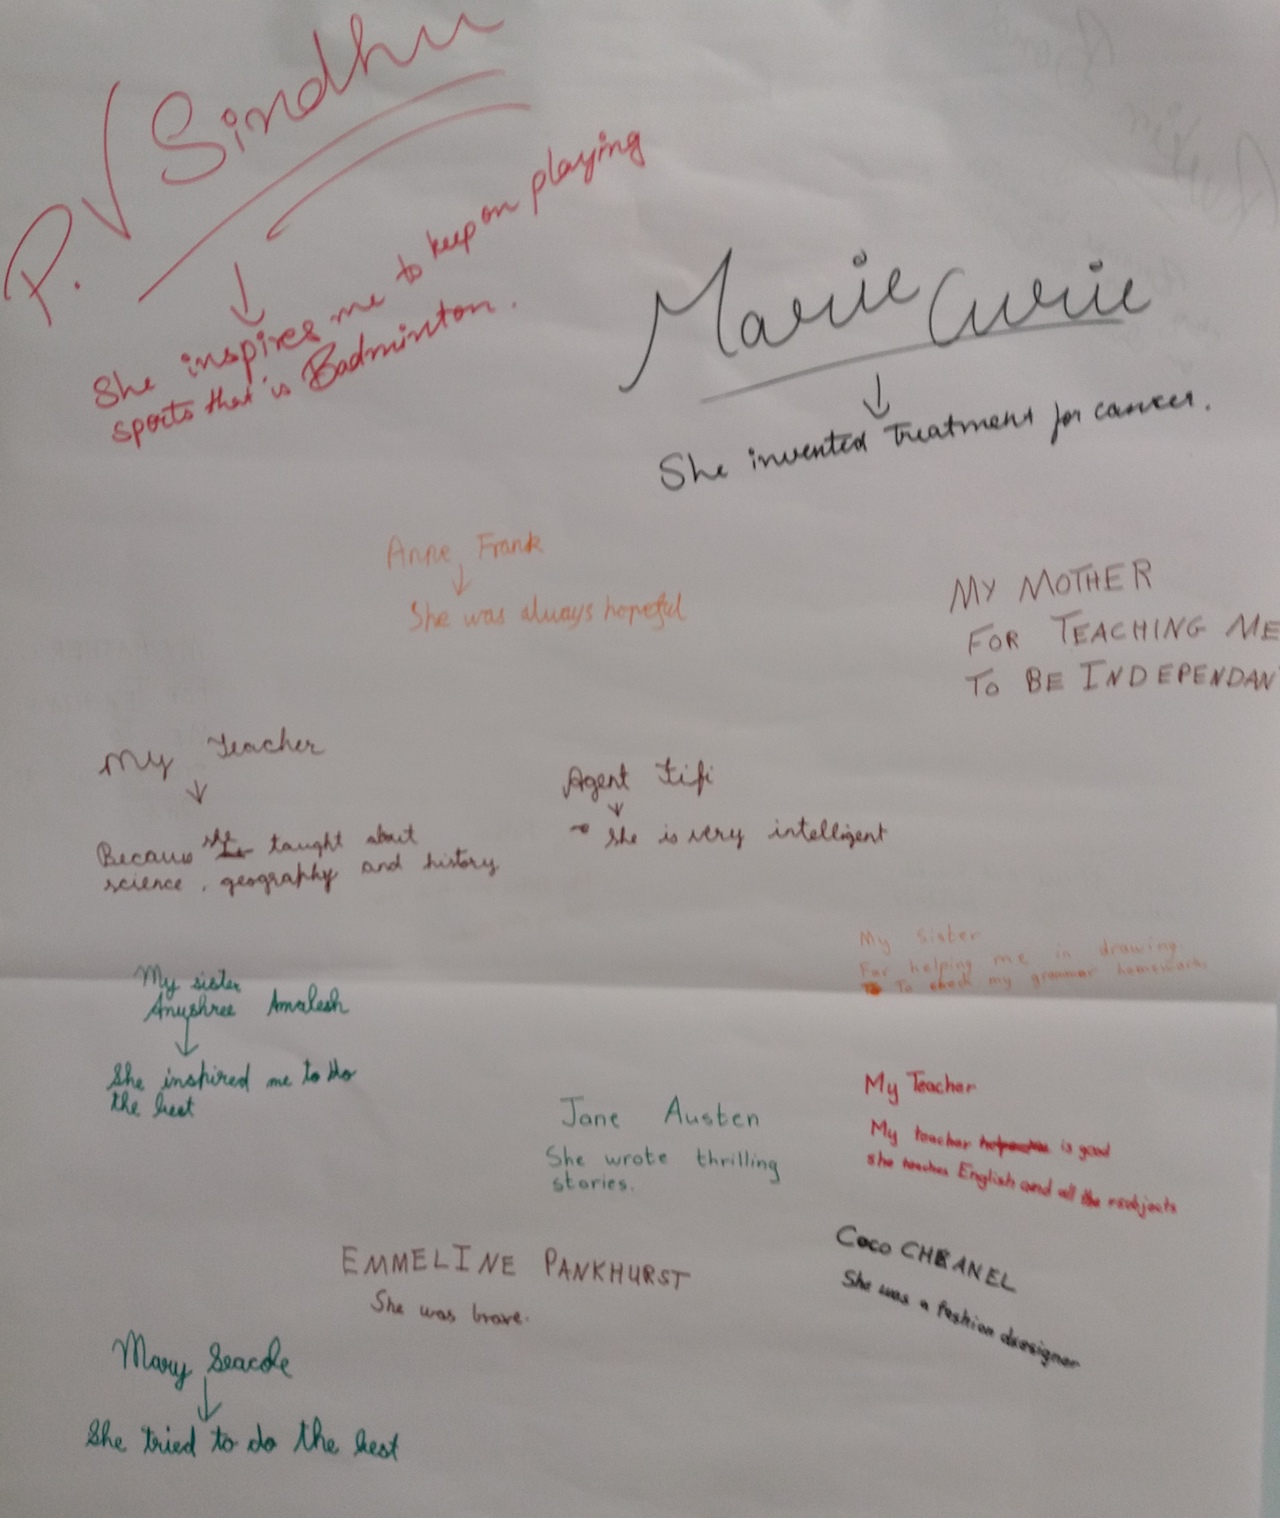 P. V Sindhu
She inspires me to keep on playing
sports that is Badminton.
Marie Curie
She invented Treatment for cancer.
Anne Frank
She was always hopeful
MY MOTHER
FOR TEACHING ME
TO BE INDEPENDAN
My Teacher
Because she taught about
science, geography and history
Agent Fifi
She is very intelligent
My sister
For helping me in drawing
To check my grammar homework
My sister
Anushree Amalesh
She inspired me to
the best
Jane Austen
She wrote thrilling
stories.
My Teacher
My teacher is good
she teaches English and all the
EMMELINE PANKHURST
She was brave.
Coco CHEANEL
She was a fashion
Mary Seacole
She tried to do the best